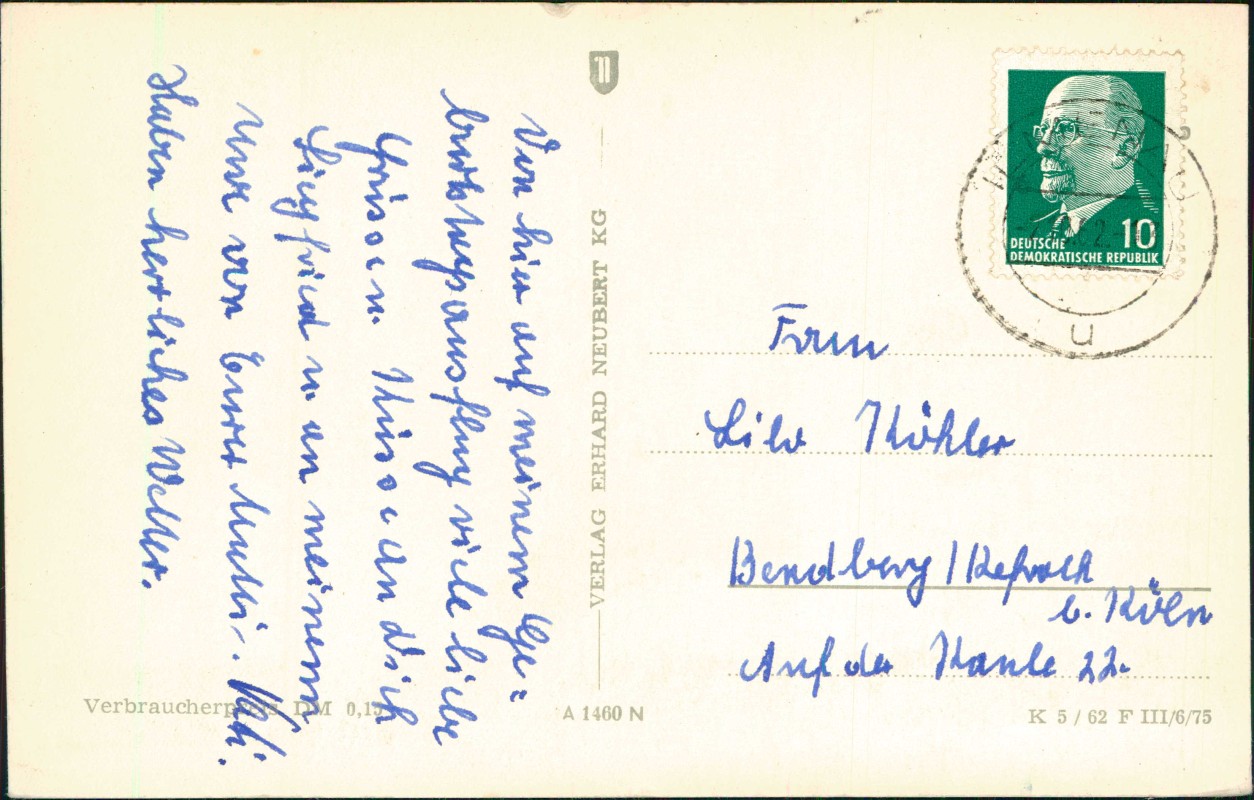 Von hier auf meinem Ge=
burtstagsausflug viele liebe
Grüsse u. Küsse an dich
Siegfried u. an meinem
Uwe von Eurer Mutti.
Haben herrliches Wetter.
VERLAG ERHARD NEUBERT KG
10
DEUTSCHE
DEMOKRATISCHE REPUBLIK
u
Frau
Lilo Köhler
Bensberg / Refrath
b. Köln
Auf der Kaule 22.
Verbraucherpreis DM 0,15
A 1460 N
K 5 / 62 F III/6/75